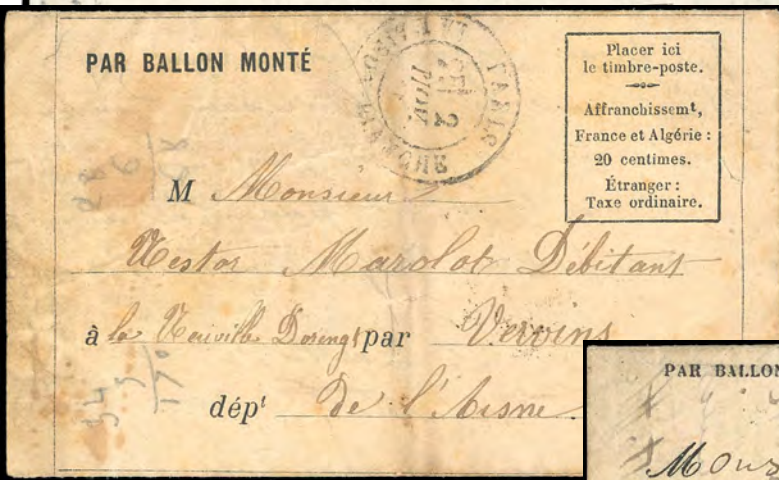 PAR BALLON MONTÉ
Placer ici
le timbre-poste.
Affranchissemt,
France et Algérie :
20 centimes.
Étranger :
Taxe ordinaire.
PARIS
2
NOV.
M Monsieur
Nestor Marolot Débitant
à la Neuville Dorengt par Vervins
dépt De l'Aisne
PAR BALLON
Mons